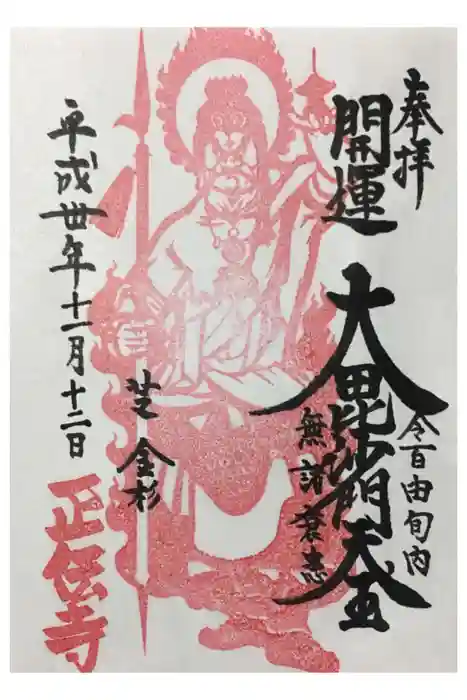 奉拝
開運
大毘沙門天
令百由旬内
無諸衰患
芝 金杉
平成丗年十一月十二日
正伝寺